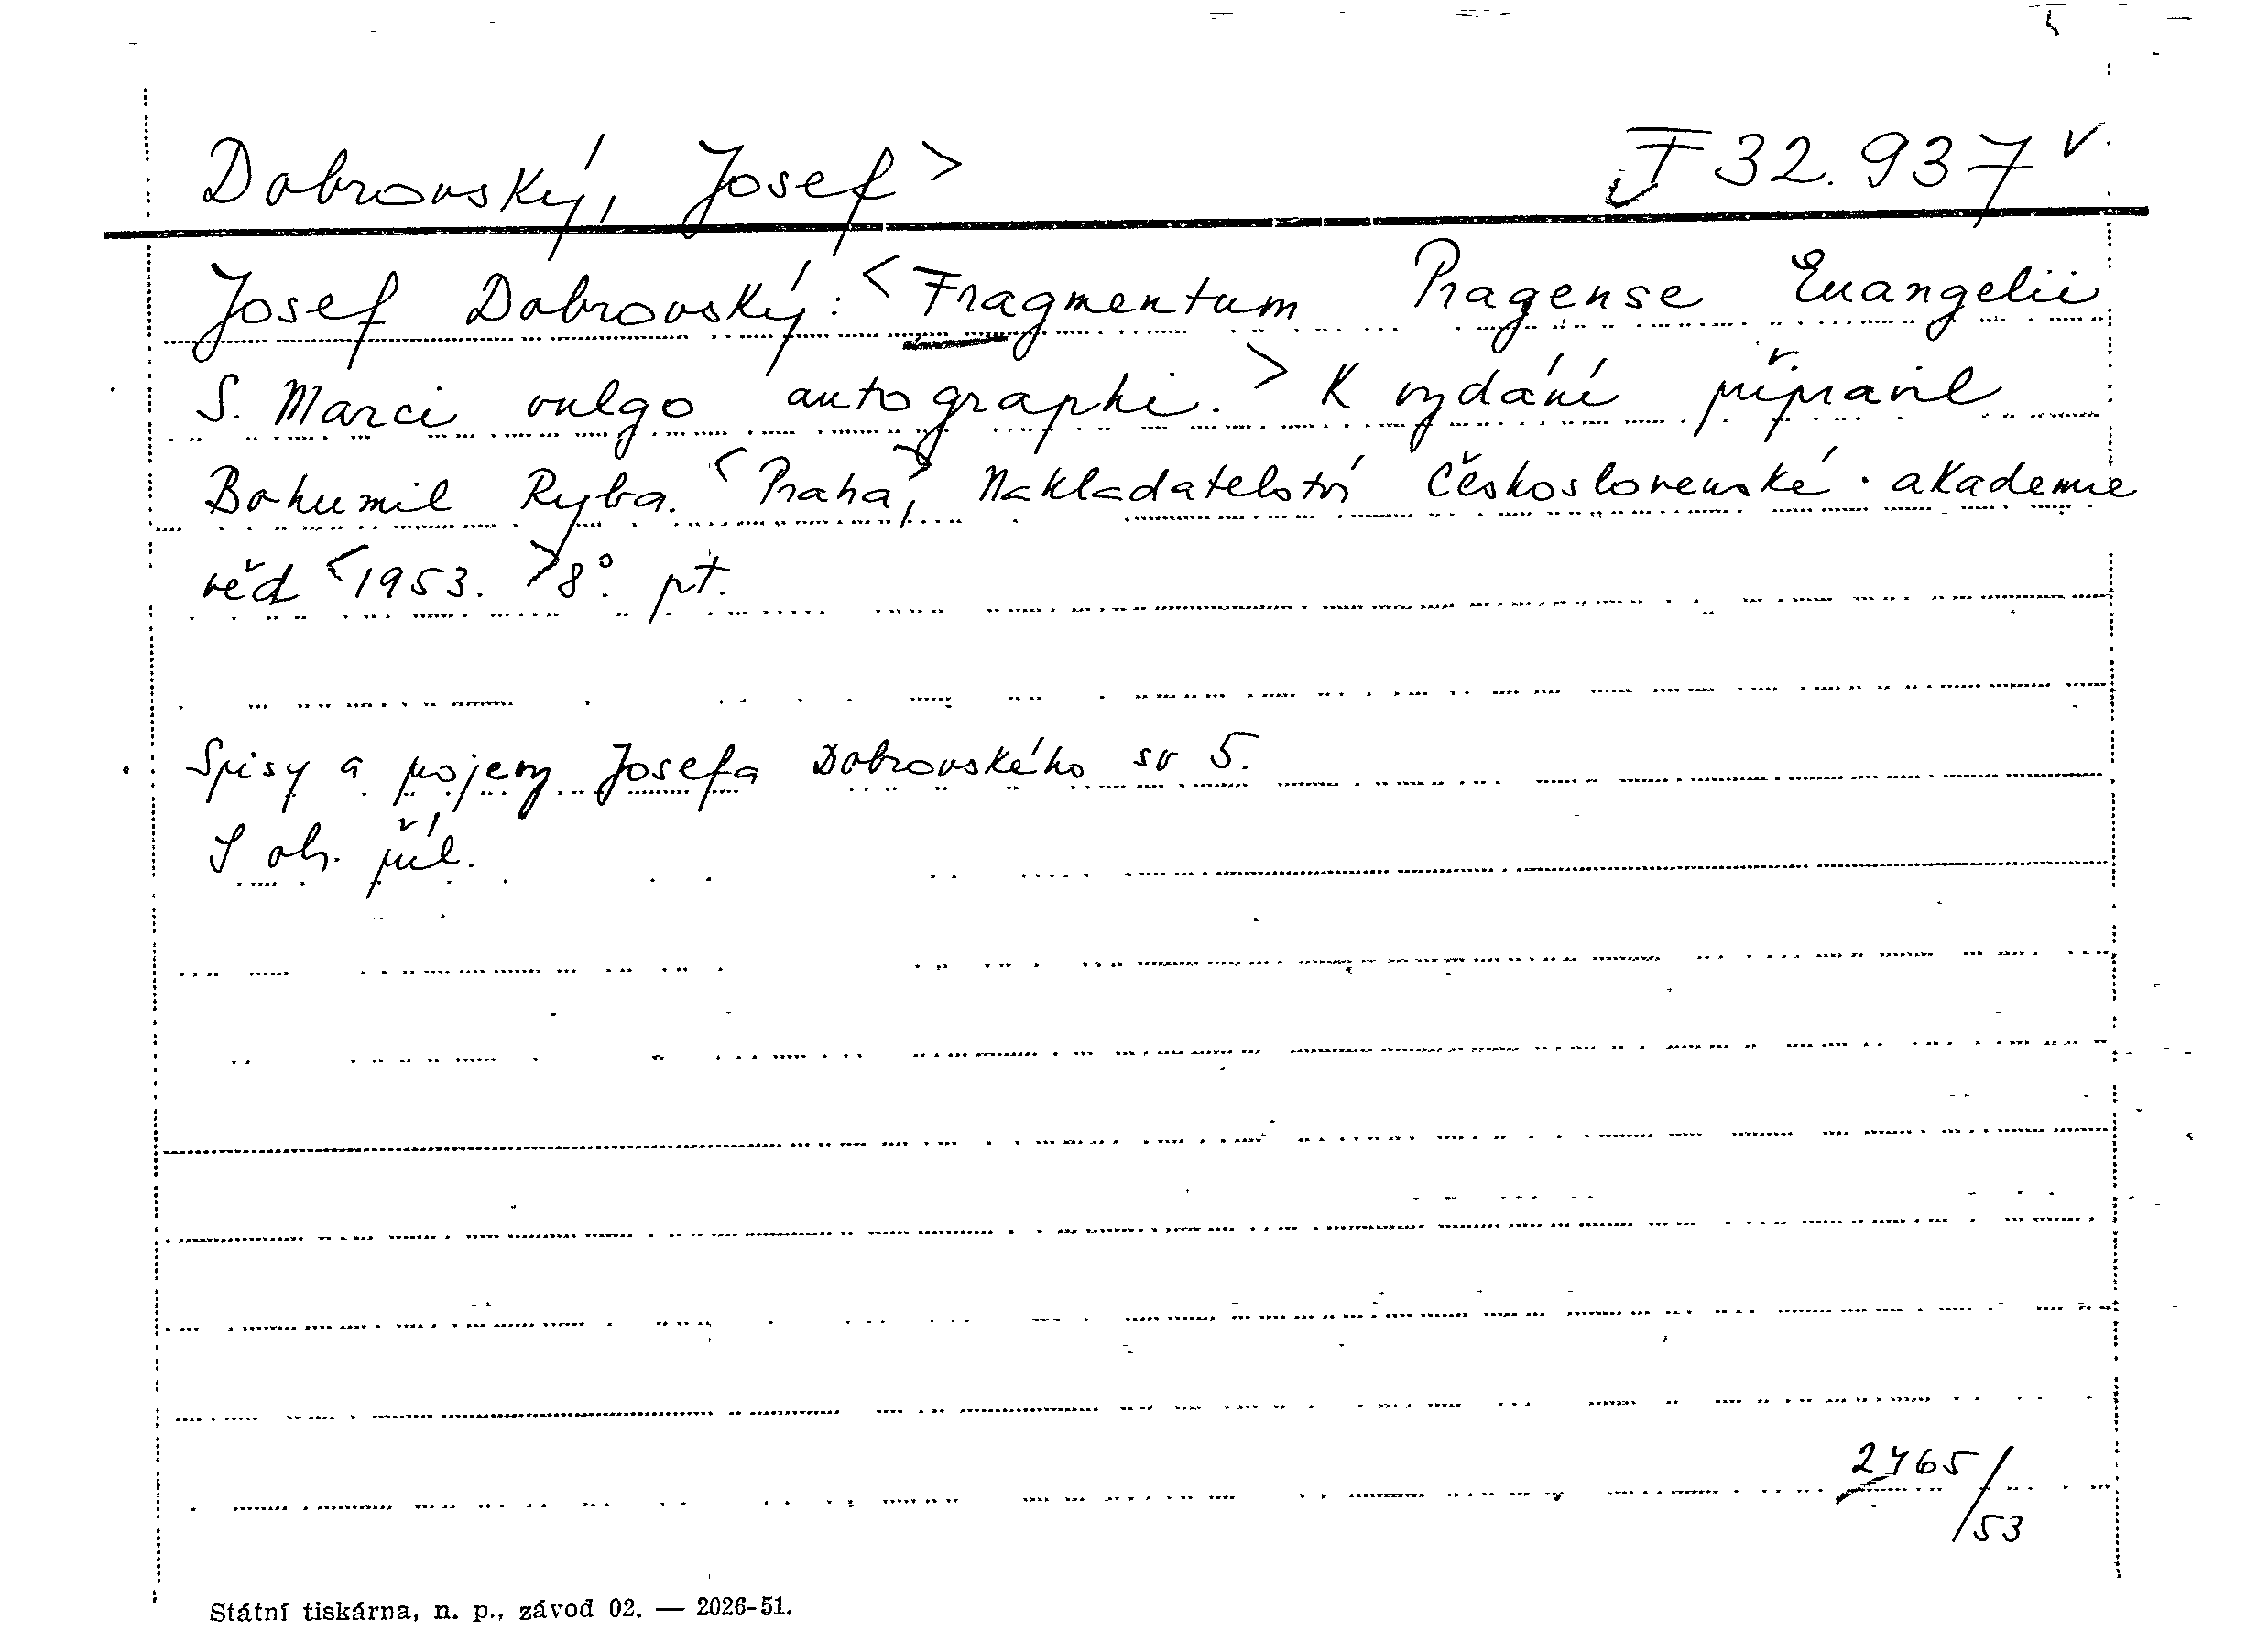 Dobrovský, Josef> I 32.937 v.
Josef Dobrovský: <Fragmentum Pragense Euangelii
S. Marci vulgo autographi.> K vydání připravil
Bohumil Ryba. <Praha>, Nakladatelství Československé akademie
věd <1953.> 8°. pt.
Spisy a projevy Josefa Dobrovského sv 5.
S ob. příl.
2465/53
Státní tiskárna, n. p., závod 02. — 2026-51.